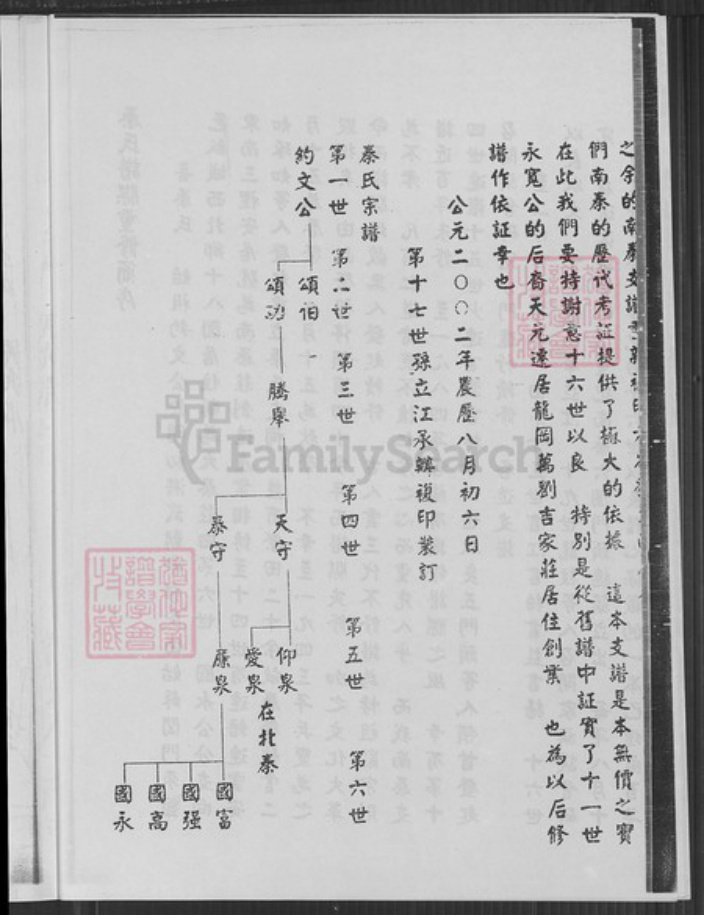 之余的南秦支譜
們南秦的歷代考証提供了極大的依據 這本支譜是本無價之寶
在此我們要特謝慈十六世以良 特別是從舊譜中証實了十一世
永寬公的后裔天元遷居龍岡萬劉吉家莊居住創業 也為以后修
譜作依証幸也
公元二〇〇二年農歷八月初六日
第十七世孫立江承輯複印裝訂
秦氏宗譜
第一世 第二世 第三世 第四世 第五世 第六世
約文公 頌伯
頌功 騰舉 天守 仰泉
愛泉 在北秦
泰守 康泉 國富
國强
國高
國永
FamilySearch